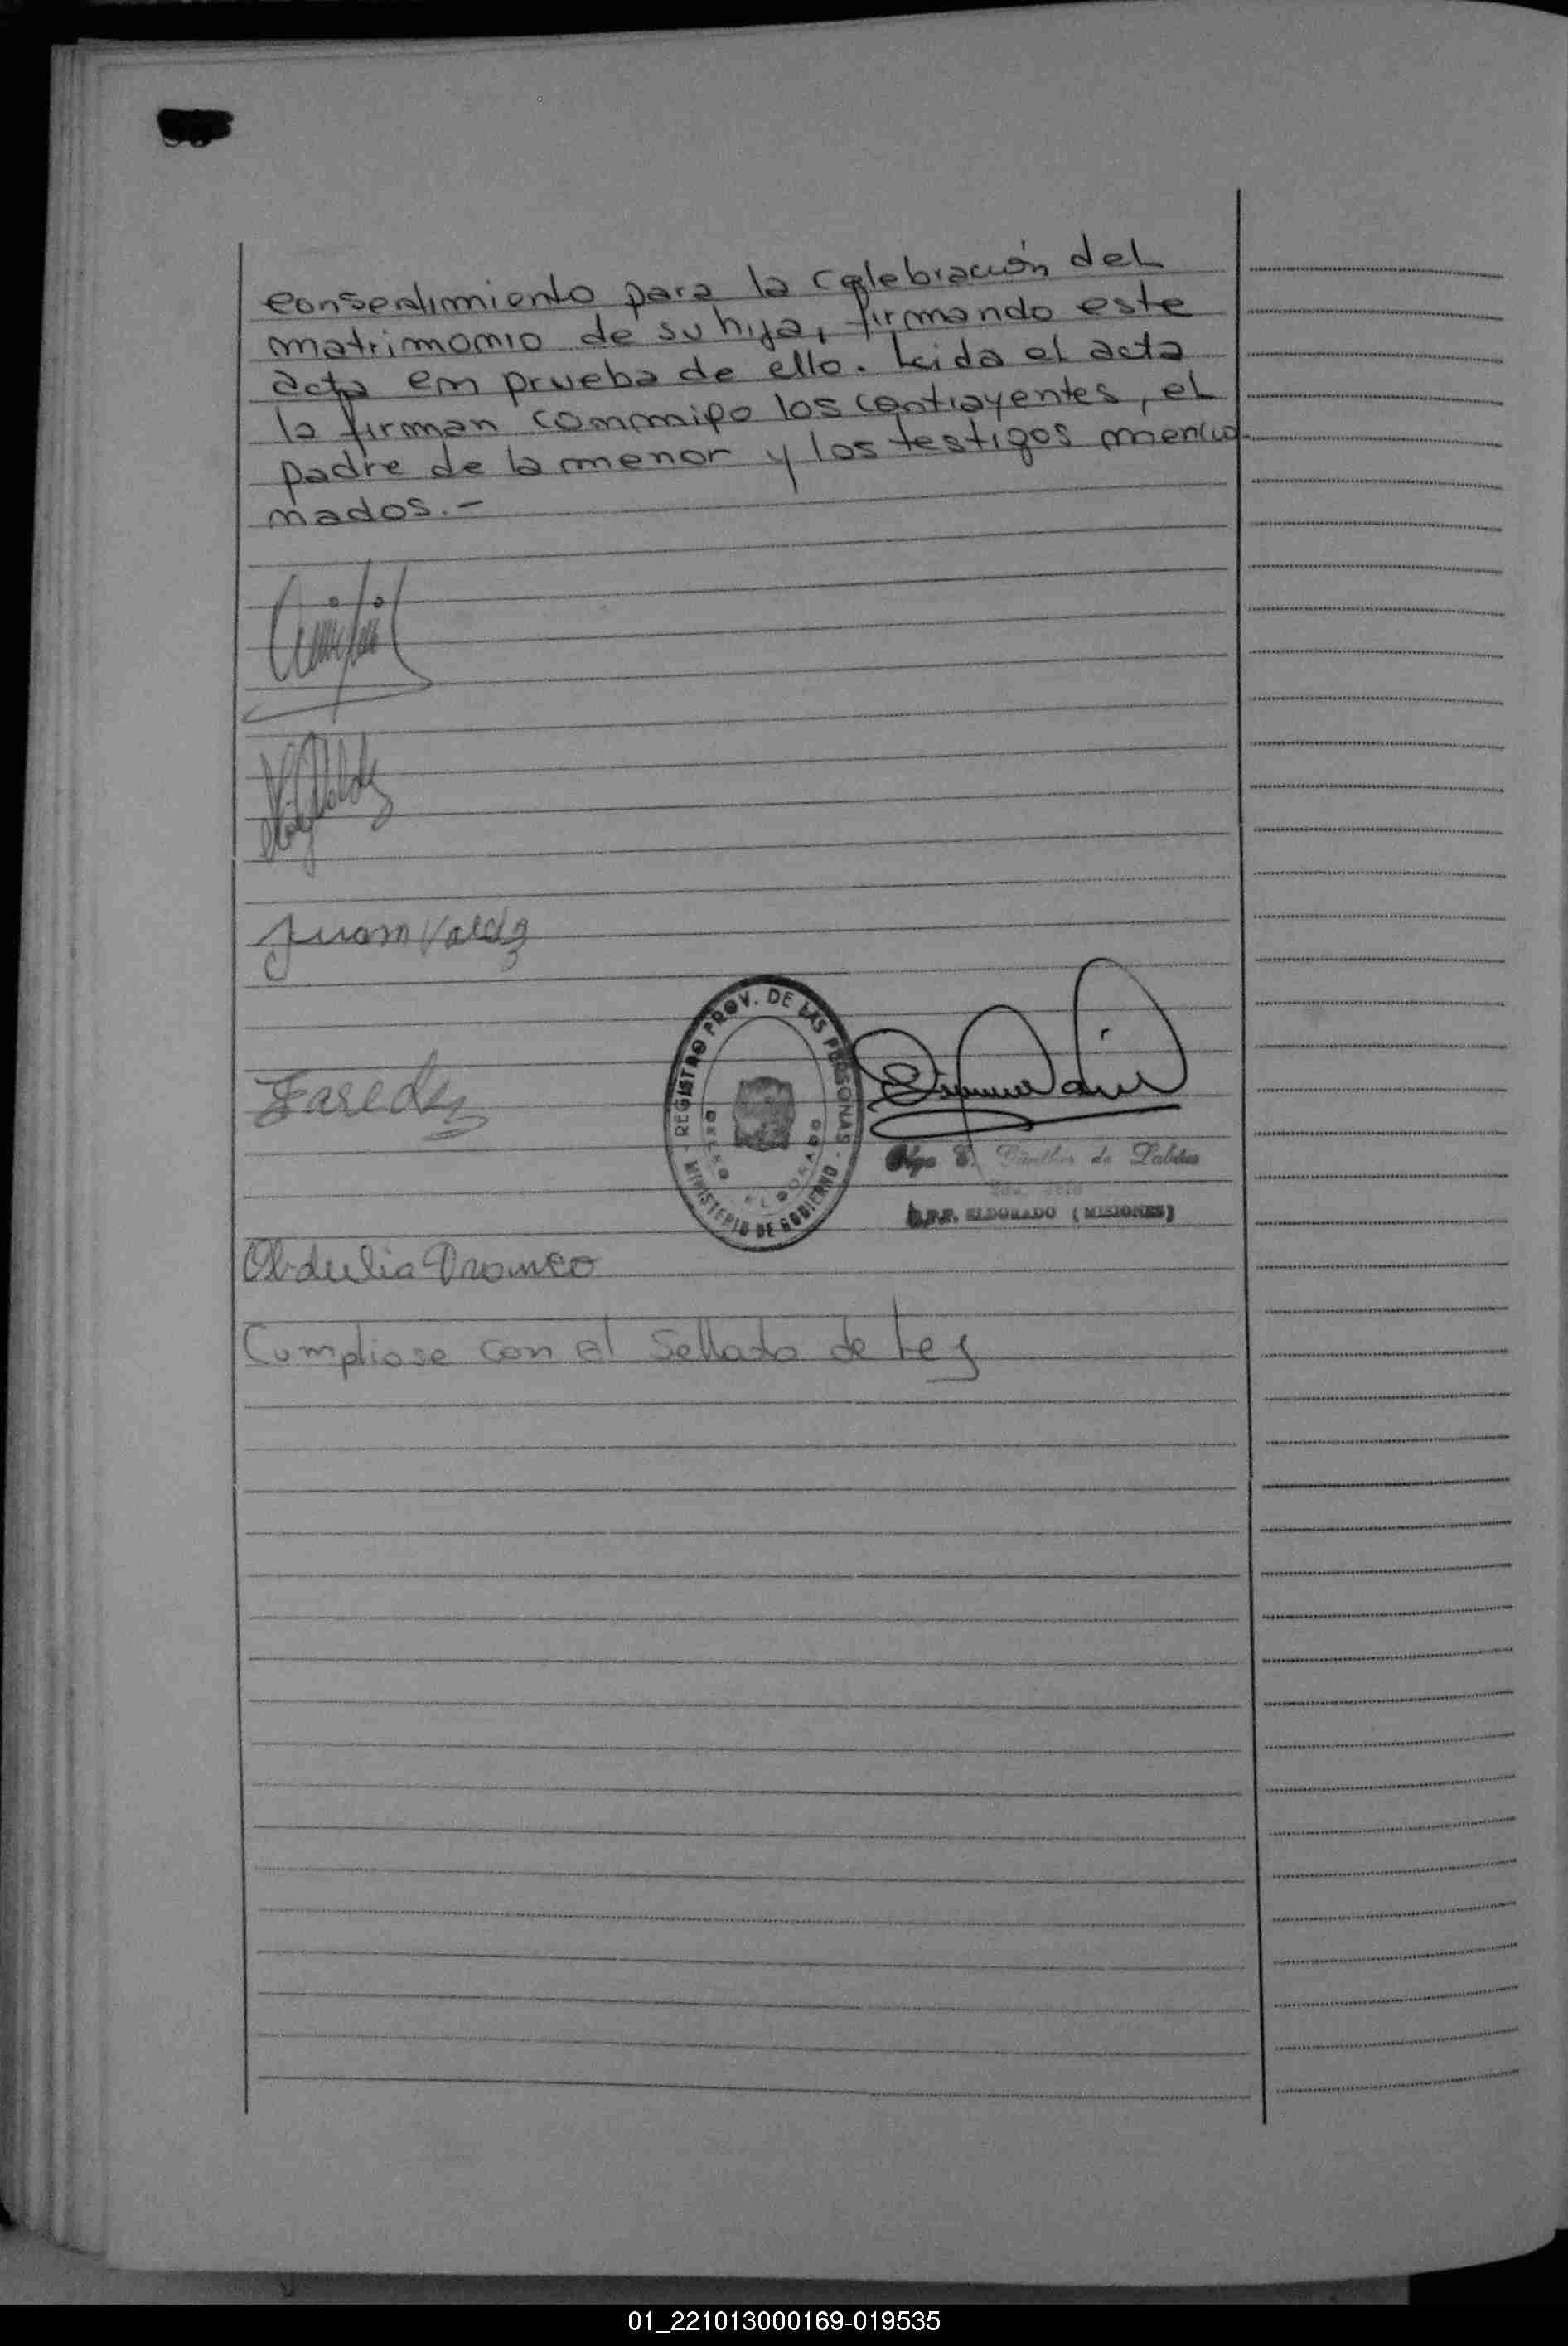 consentimiento para la celebración del
matrimomio de su hija, firmando este
acta em prueba de ello. Leida el acta
la firman commigo los contrayentes, el
padre de la menor y los testigos mencio
mados.-
Juan Valdz
REGISTRO PROV. DE LAS PERSONAS
MINISTERIO DE GOBIERNO
ELDORADO
Olga E. Günther de
R.P.P. ELDORADO (MISIONES)
Obdulia
Cumpliose con el Sellado de Ley
01_221013000169-019535